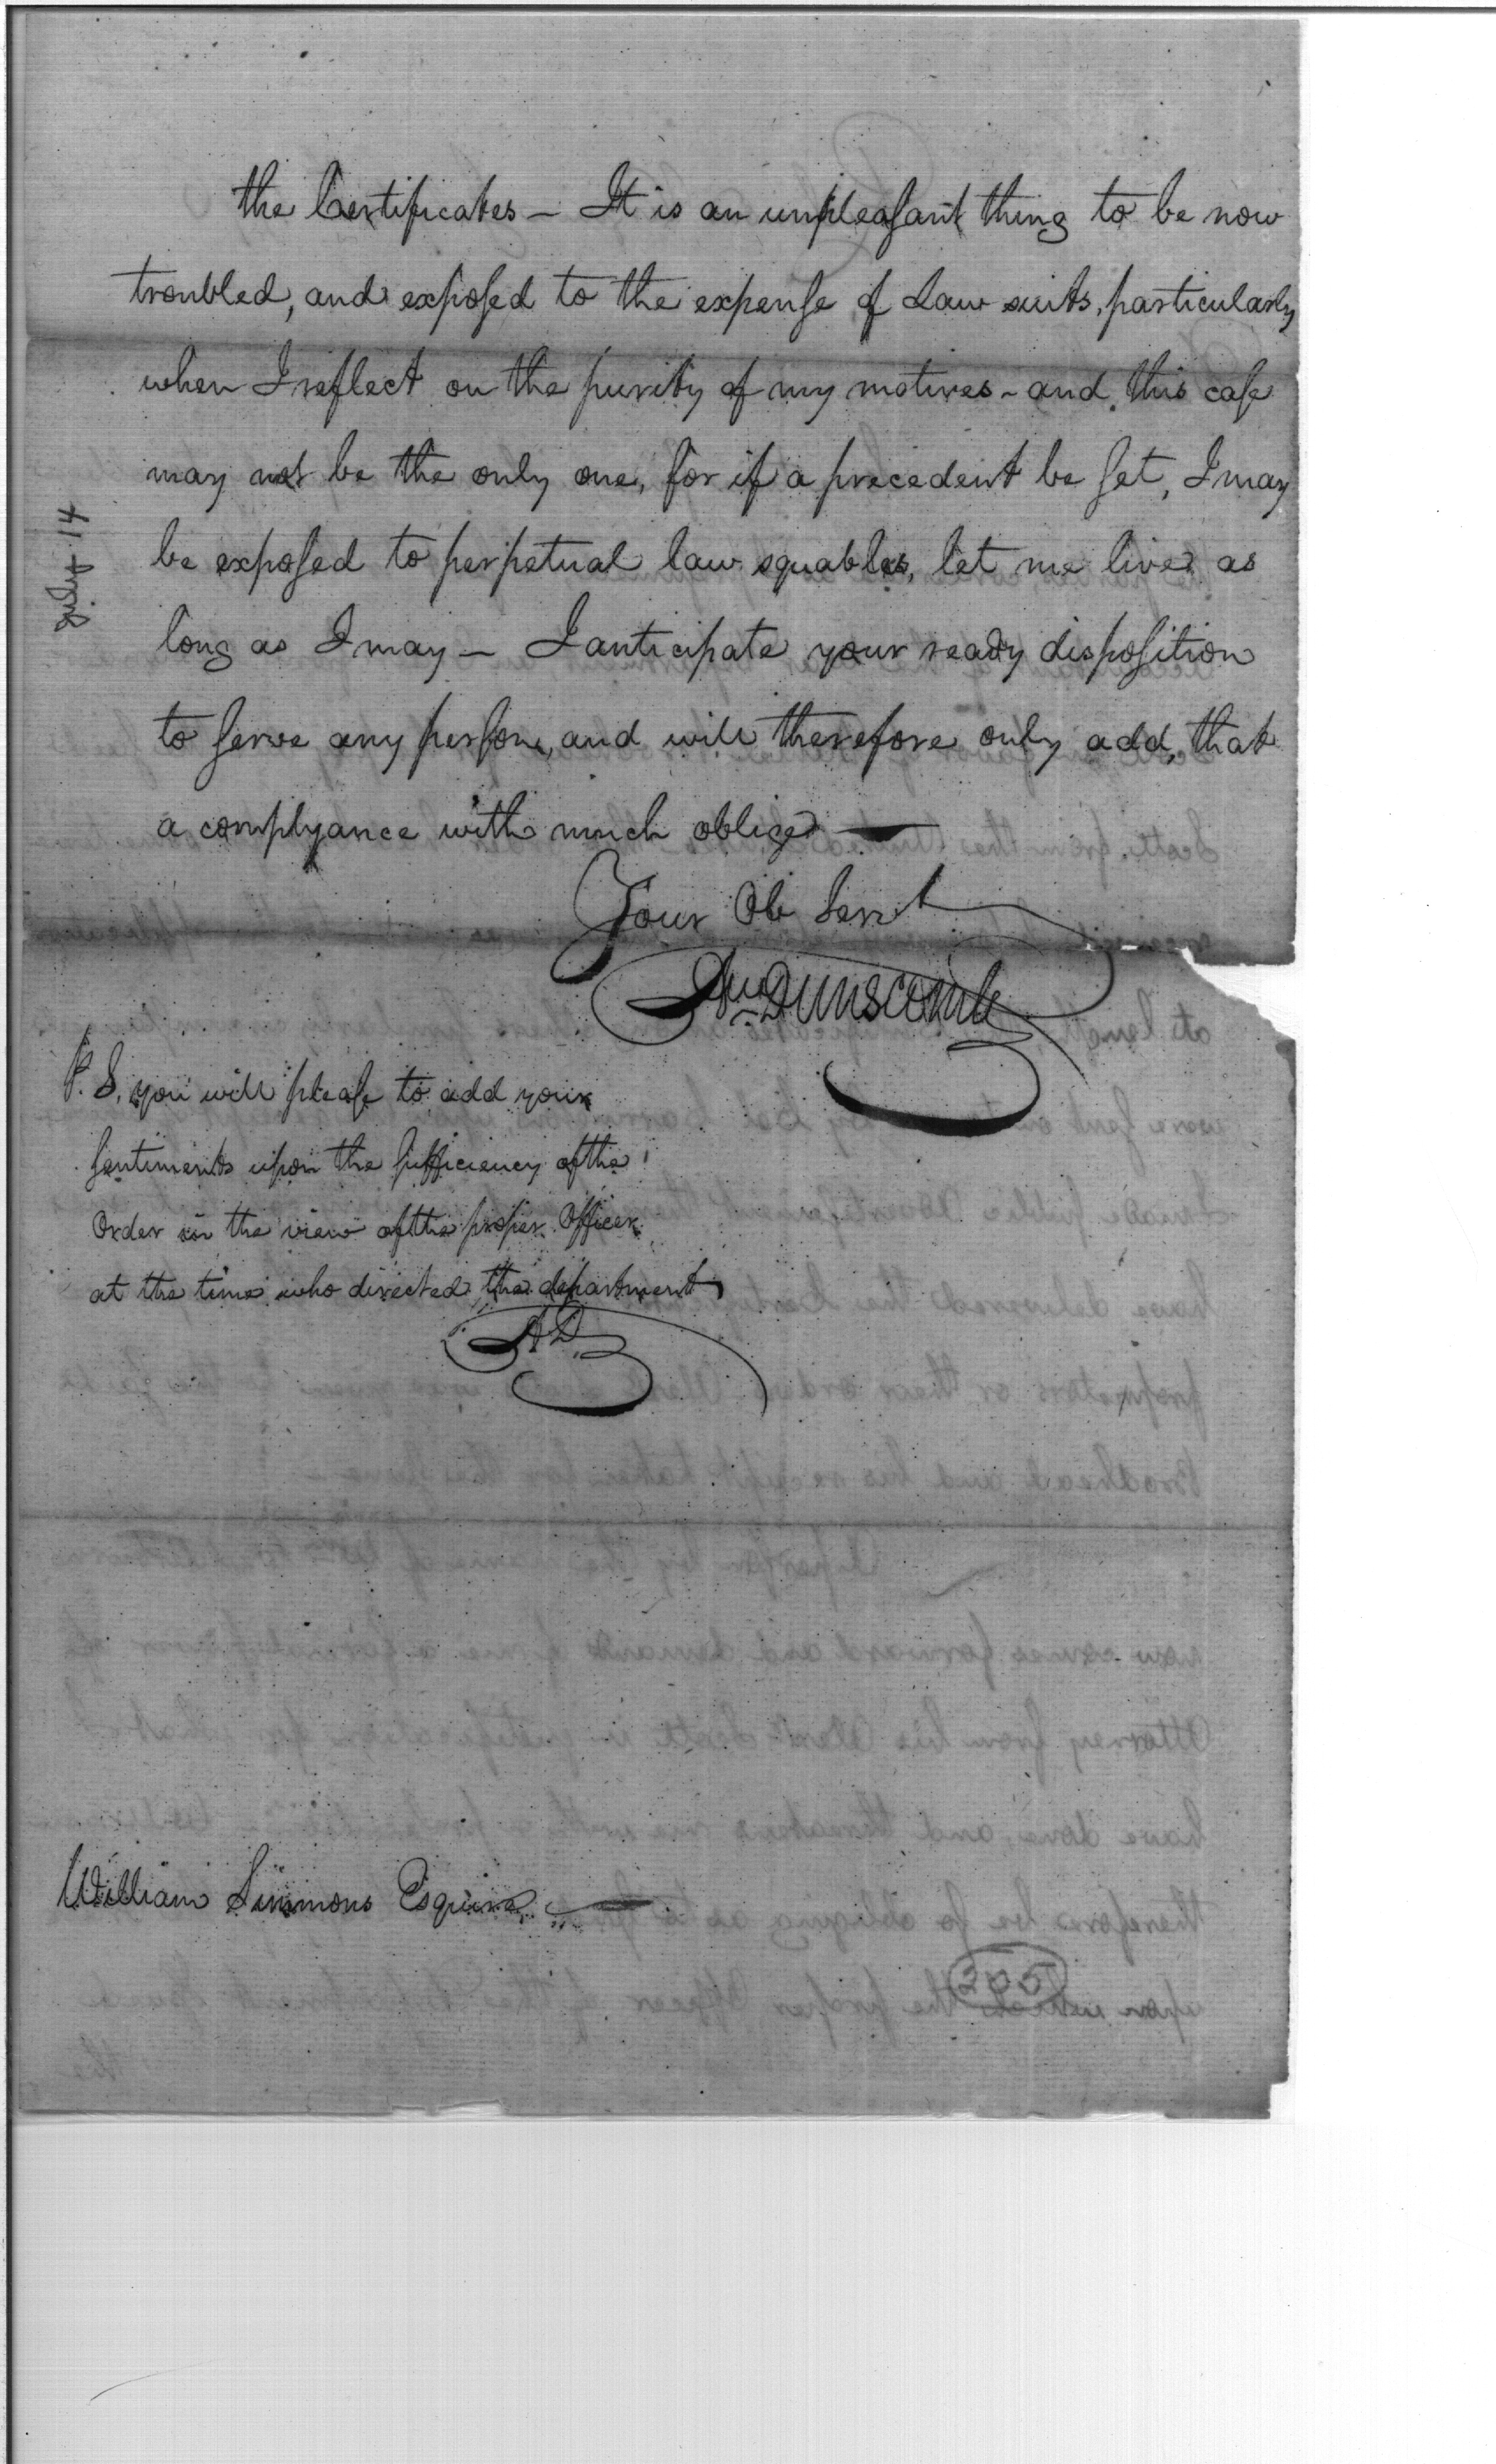 the Certificates – It is an unpleasant thing to be now
troubled, and exposed to the expense of Law suits, particularly
when I reflect on the purity of my motives – and this case
may not be the only one, for if a precedent be set, I may
be exposed to perpetual law squables, let me live as
long as I may – I anticipate your ready disposition
to serve any person, and will therefore only add, that
a complyance with much oblige
Your Ob Servt
Aw Dunscomb
July 14
P.S. you will please to add your
sentiments upon the sufficiency of the
Order in the view of the proper Officer
at the time who directed the department
AD
William Simmons Esquire
205